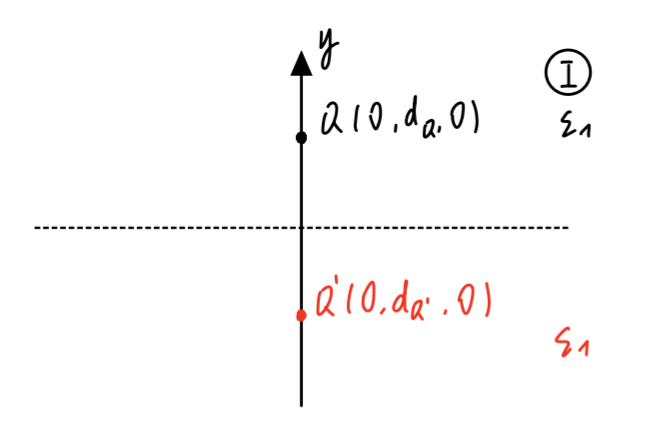 y
I
Q(0,d_Q,0)
ε₁
Q'(0,d_Q',0)
ε₁